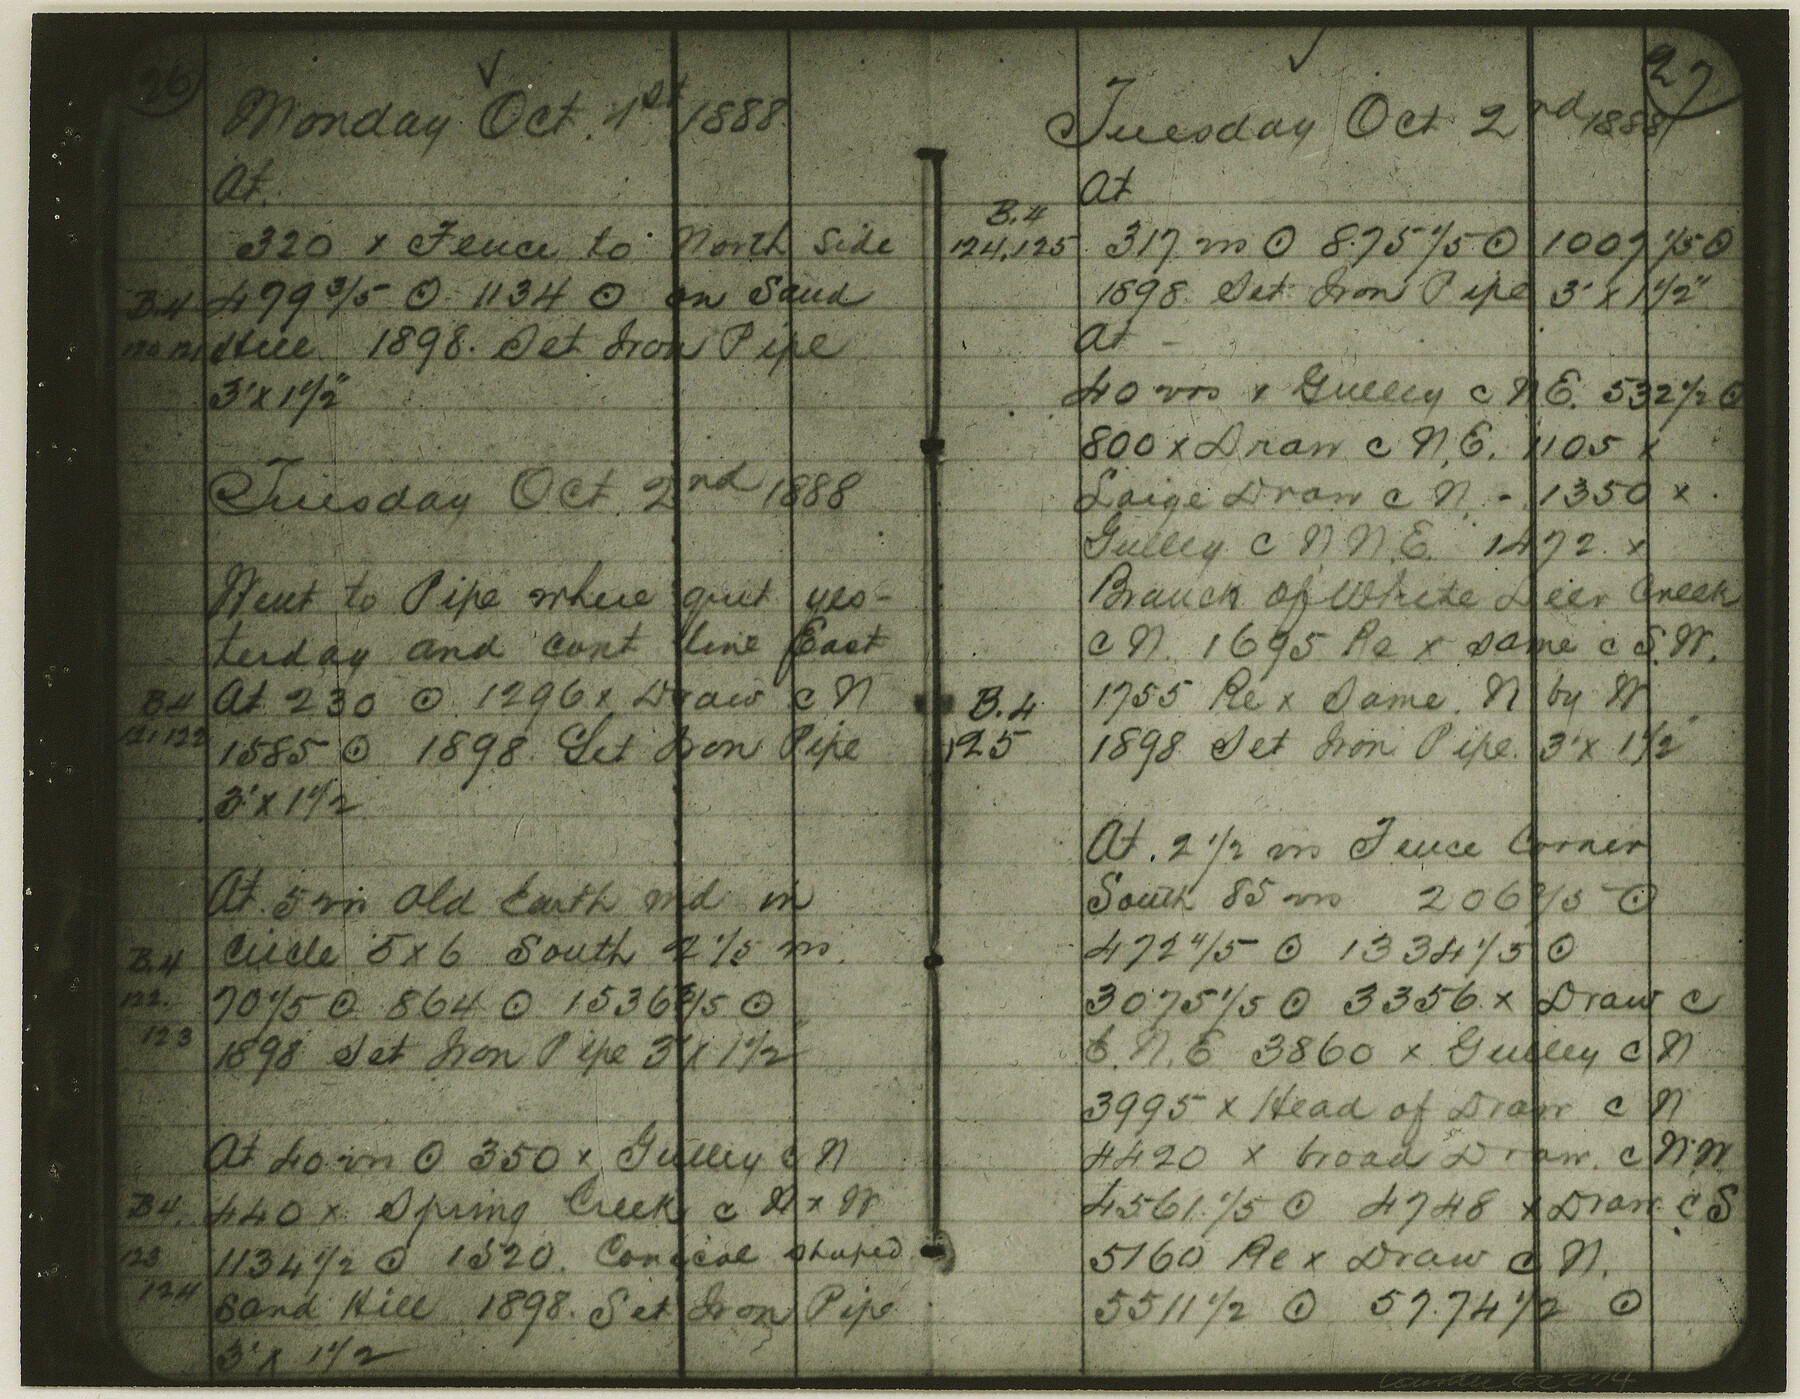 26
Monday Oct. 1st 1888
At.
320 x Fence to North Side
B.4 479 3/5 ⊙ 1134 ⊙ on Sand
120 121 Hill 1898. Set Iron Pipe
3' x 1 1/2"
Tuesday Oct. 2nd 1888
Went to Pipe where quit yes-
terday and cont line East
B.4 At 230 ⊙ 1296 x Draw c N
121 122 1585 ⊙ 1898. Set Iron Pipe
3' x 1 1/2
At. 5 vrs Old Earth md in
B.4 Circle 5 x 6 South 2 1/5 vrs.
122. 70 1/5 ⊙ 864 ⊙ 1536 3/5 ⊙
123 1898 Set Iron Pipe 3' x 1 1/2
At 40 vrs ⊙ 350 x Gulley c N
B4. 440 x Spring Creek c N x W
123 1134 1/2 ⊙ 1520. Conical shaped
124 Sand Hill 1898. Set Iron Pipe
3' x 1 1/2
27
Tuesday Oct 2nd 1888
At
B.4
124,125 317 vrs ⊙ 875 1/5 ⊙ 1007 1/5 ⊙
1898. Set Iron Pipe 3' x 1 1/2"
At -
40 vrs x Gulley c N.E. 532 1/2 ⊙
800 x Draw c N.E. 1105 x
Large Draw c N. - 1350 x
Gulley c N N.E. 1472 x
Branch of White Deer Creek
c N. 1695 Re x same c S.W.
B.4 1755 Re x Same. N by W
125 1898 Set Iron Pipe. 3' x 1 1/2"
At. 2 1/2 vrs Fence Corner
South 85 vrs 206 /5 ⊙
472 4/5 ⊙ 1334 1/5 ⊙
3075 1/5 ⊙ 3356 x Draw c
E. N. E 3860 x Gulley c N
3995 x Head of Draw c N
4420 x broad Draw. c N.W
4561 1/5 ⊙ 4748 x Draw c S
5160 Re x Draw c N.
5511 1/2 ⊙ 5774 1/2 ⊙